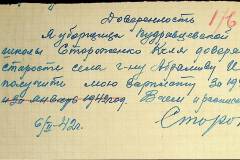 Доверенность 176
Я уборщица Пудравдевской
школы Стороженко Келя доверя
старосте села г-ну Абрамову И
получить мою зарплату за 19
январь 1942 год. В чем и распис
6/II-42г. Сторо